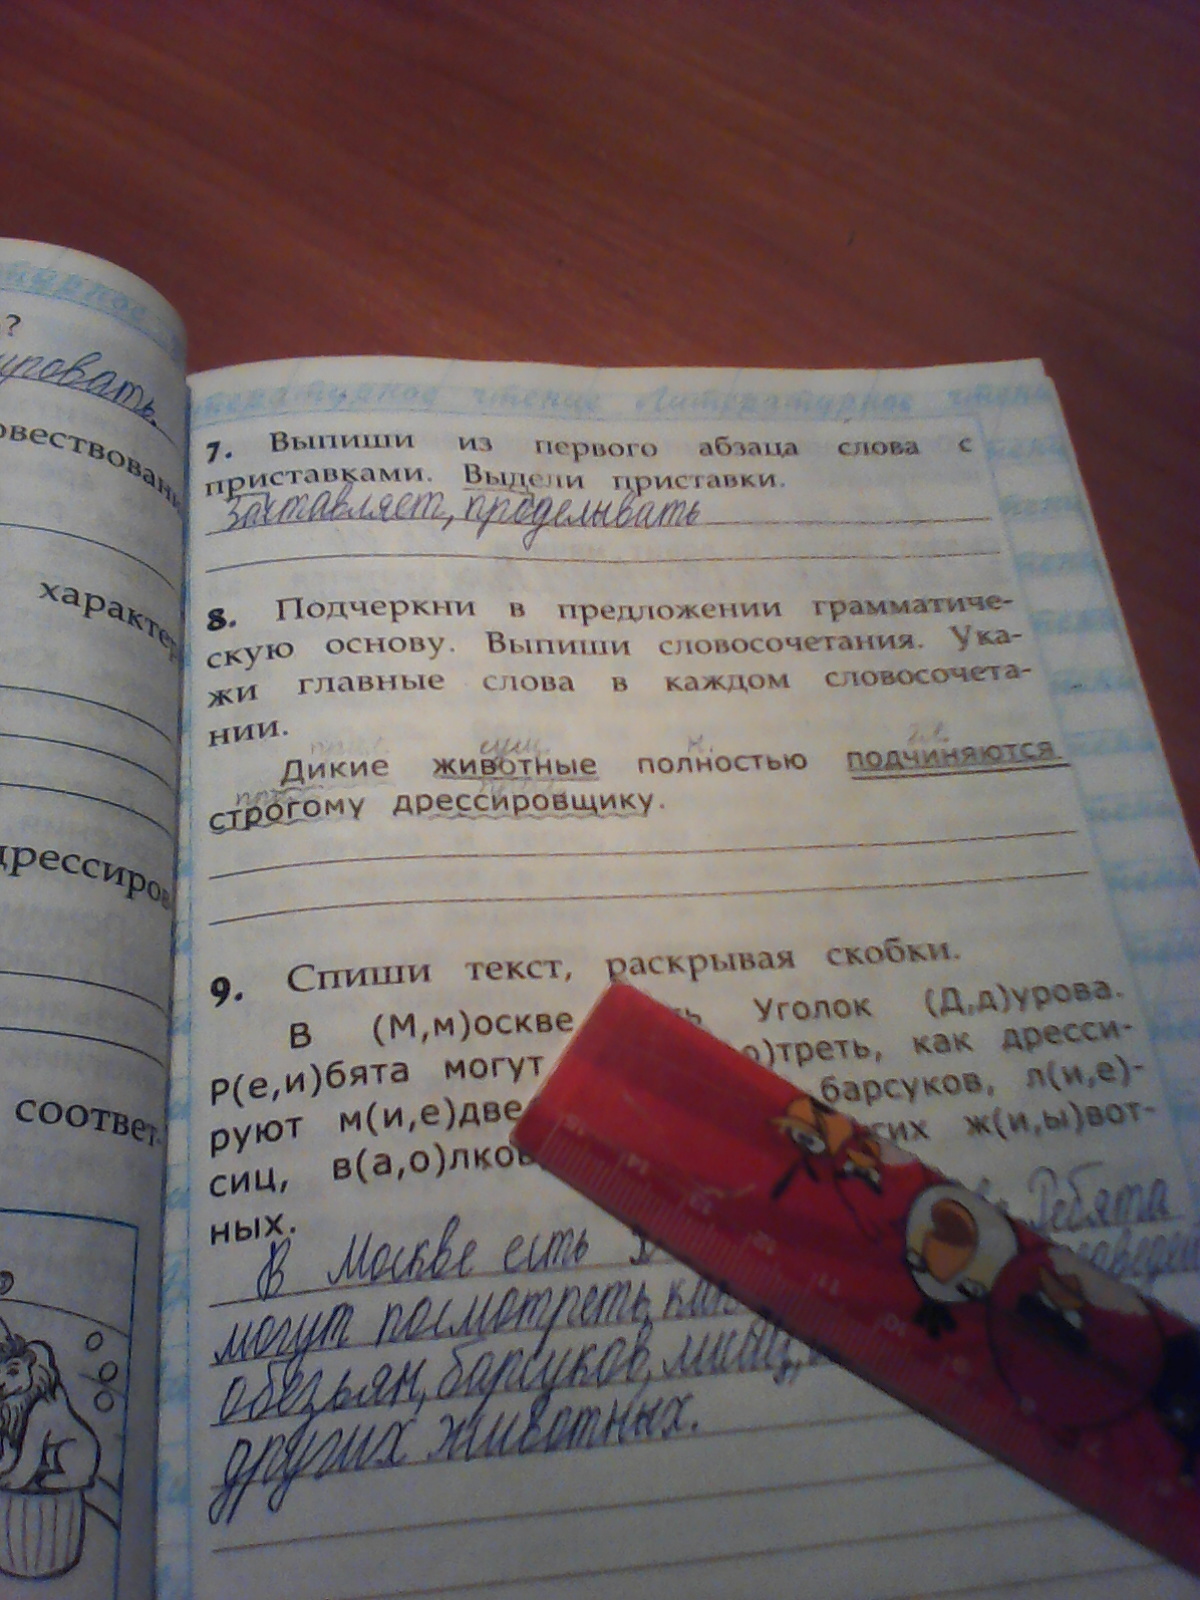 ?
ировать.
характер
соответ-
Литературное чтение Литературное чтение
7. Выпиши из первого абзаца слова с
приставками. Выдели приставки.
Заставляет, проделывать
8. Подчеркни в предложении грамматиче-
скую основу. Выпиши словосочетания. Ука-
жи главные слова в каждом словосочета-
нии.
прил. сущ. н. гл.
Дикие животные полностью подчиняются
строгому дрессировщику.
9. Спиши текст, раскрывая скобки.
В (М,м)оскве Уголок (Д,д)урова.
Р(е,и)бята могут о)треть, как дресси-
руют м(и,е)две барсуков, л(и,е)-
сиц, в(а,о)лков, гих ж(и,ы)вот-
ных.
В Москве есть Ребята
могут посмотреть, как
обезьян, барсуков, лисиц,
других животных.